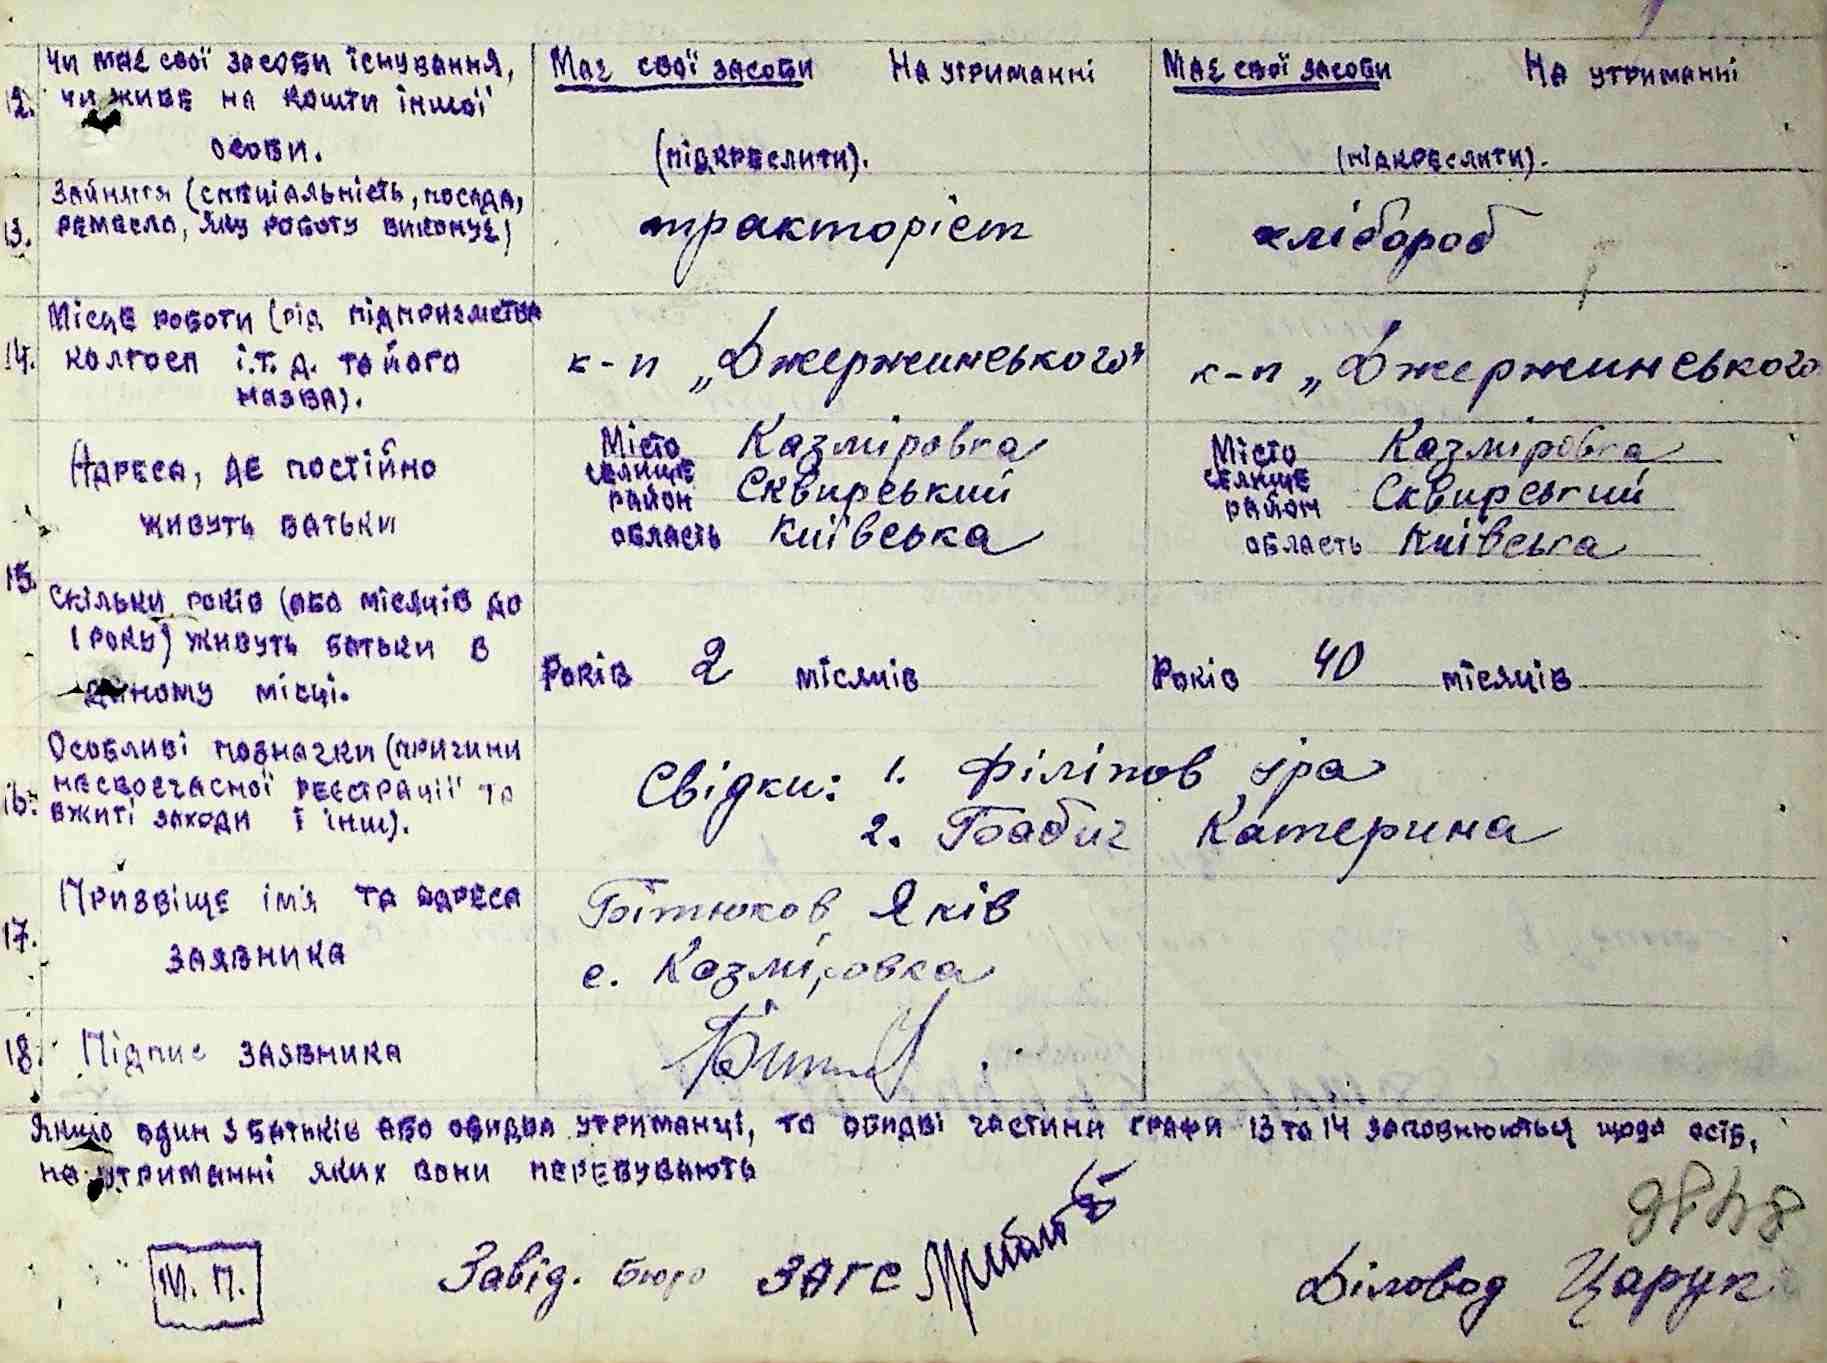 12. Чи має свої засоби існування,
чи живе на кошти іншої
особи.
Має свої засоби На утриманні
(підкреслити).
Має свої засоби На утриманні
(підкреслити).
13. Зайняття (спеціальність, посада,
ремесло, яку роботу виконує)
тракторіст
хлібороб
14. Місце роботи (рід підприємства
колгосп і.т.д. та його
назва).
к-п „Джержинського"
к-п „Джержинського
15. Адреса, де постійно
живуть батьки
Місто Казміровка
селище
район Сквирський
область Київська
Місто Казміровка
селище
район Сквирський
область Київська
Скільки років (або місяців до
1 року) живуть батьки в
даному місці.
Років 2 місяців
Років 40 місяців
16. Особливі позначки (причини
несвоєчасної реєстрації та
вжиті заходи і інш).
Свідки: 1. Філіпов Іра
2. Бабич Катерина
17. Прізвіще ім'я та адреса
заявника
Бітюков Яків
с. Казміровка
18. Підпис заявника
Якщо один з батьків або обидва утриманці, то обидві частини графи 13 та 14 заповнюються щодо осіб,
на утриманні яких вони перебувають
М.П.
Завід. бюро ЗАГС
Діловод Царук
8498